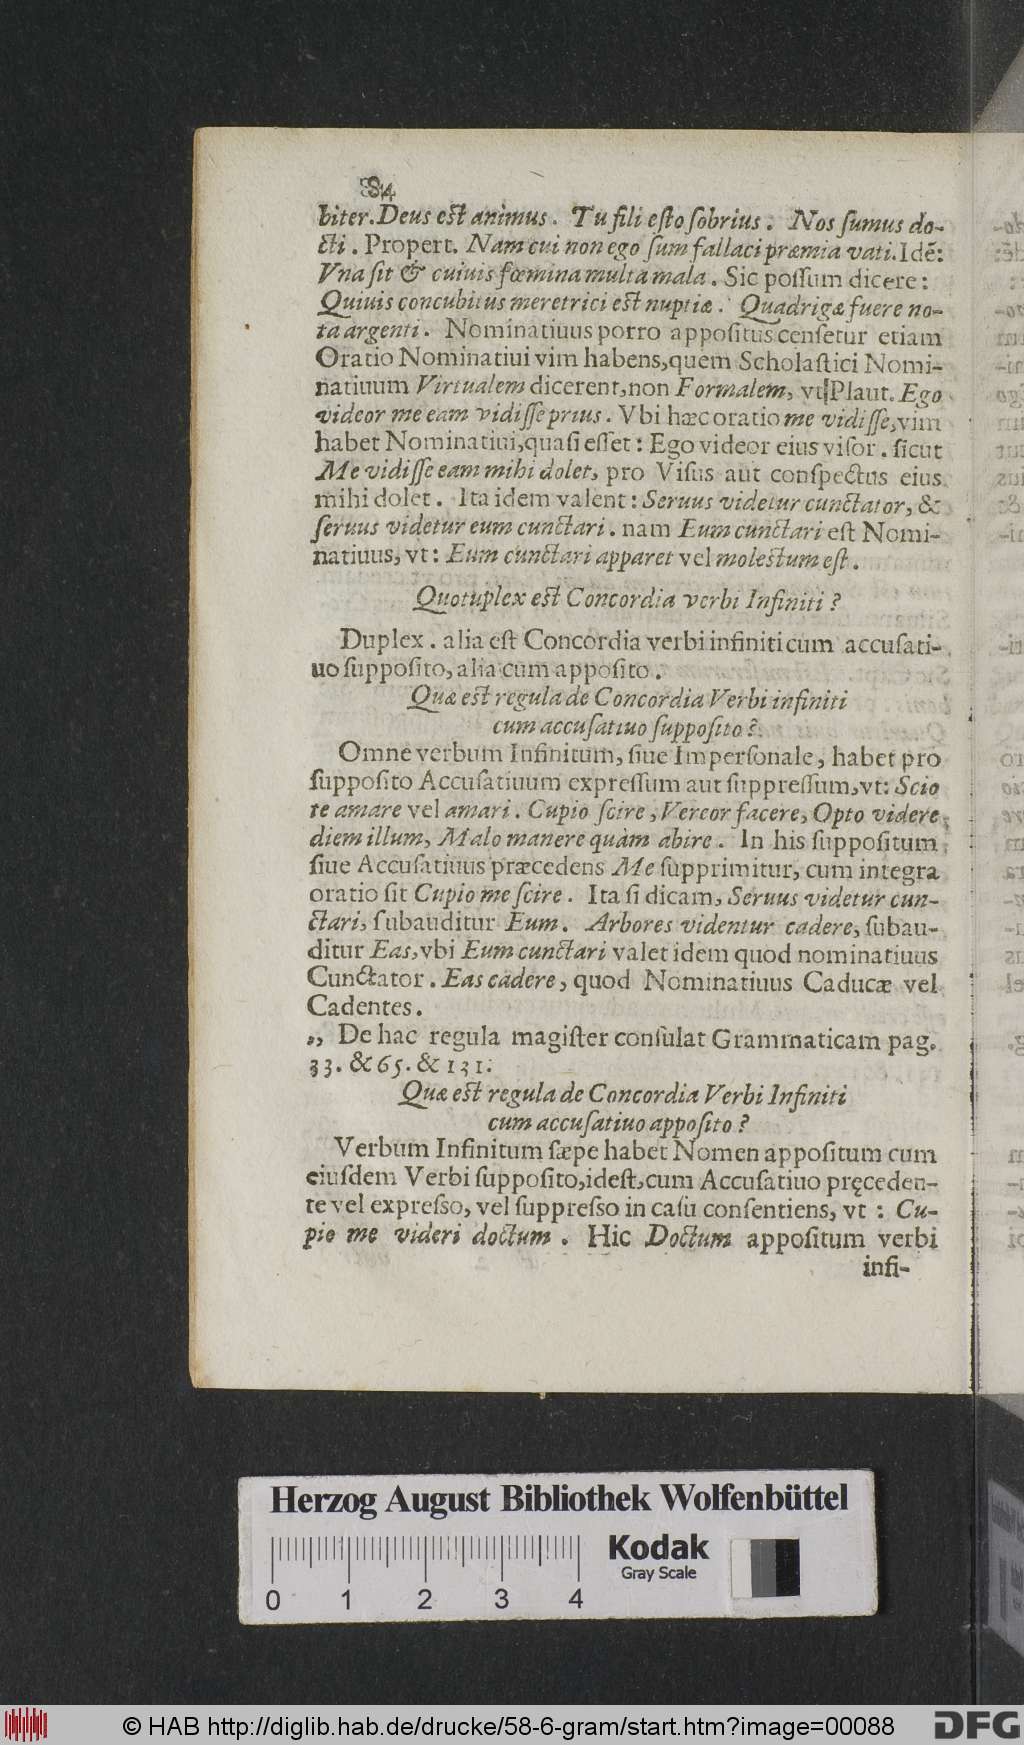 84
biter. Deus est animus. Tu fili esto ſobrius. Nos ſumus do-
cti. Propert. Nam cui non ego ſum fallaci præmia vati. Idẽ:
Vna ſit & cuiuis fœmina multa mala. Sic poſſum dicere:
Quiuis concubitus meretrici est nuptiæ. Quadrigæ fuere no-
ta argenti. Nominatiuus porro appoſitus cenſetur etiam
Oratio Nominatiui vim habens, quem Scholaſtici Nomi-
natiuum Virtualem dicerent, non Formalem, vt Plaut. Ego
videor me eam vidiſſe prius. Vbi hæc oratio me vidiſſe, vim
habet Nominatiui, quaſi eſſet: Ego videor eius viſor. ſicut
Me vidiſſe eam mihi dolet, pro Viſus aut conſpectus eius
mihi dolet. Ita idem valent: Seruus videtur cunctator, &
ſeruus videtur eum cunctari. nam Eum cunctari eſt Nomi-
natiuus, vt: Eum cunctari apparet vel molestum eſt.
Quotuplex est Concordia verbi Infiniti?
Duplex. alia eſt Concordia verbi infiniti cum accuſati-
uo ſuppoſito, alia cum appoſito.
Quæ est regula de Concordia Verbi infiniti
cum accuſatiuo ſuppoſito?
Omne verbum Infinitum, ſiue Imperſonale, habet pro
ſuppoſito Accuſatiuum expreſſum aut ſuppreſſum, vt: Scio
te amare vel amari. Cupio ſcire, Vereor facere, Opto videre
diem illum, Malo manere quàm abire. In his ſuppoſitum
ſiue Accuſatiuus præcedens Me ſupprimitur, cum integra
oratio ſit Cupio me ſcire. Ita ſi dicam, Seruus videtur cun-
ctari, ſubauditur Eum. Arbores videntur cadere, ſubau-
ditur Eas, vbi Eum cunctari valet idem quod nominatiuus
Cunctator. Eas cadere, quod Nominatiuus Caducæ vel
Cadentes.
„ De hac regula magiſter conſulat Grammaticam pag.
33. & 65. & 131.
Quæ est regula de Concordia Verbi Infiniti
cum accuſatiuo appoſito?
Verbum Infinitum ſæpe habet Nomen appoſitum cum
eiuſdem Verbi ſuppoſito, ideſt, cum Accuſatiuo pręceden-
te vel expreſſo, vel ſuppreſſo in caſu conſentiens, vt: Cu-
pio me videri doctum. Hic Doctum appoſitum verbi
infi-
Herzog August Bibliothek Wolfenbüttel
Kodak
Gray Scale
0 1 2 3 4
© HAB http://diglib.hab.de/drucke/58-6-gram/start.htm?image=00088
DFG